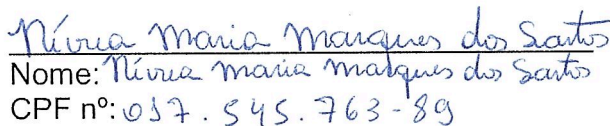 Nívea Maria Marques dos Santos
Nome: Nívea Maria Marques dos Santos
CPF nº: 017.545.763-89